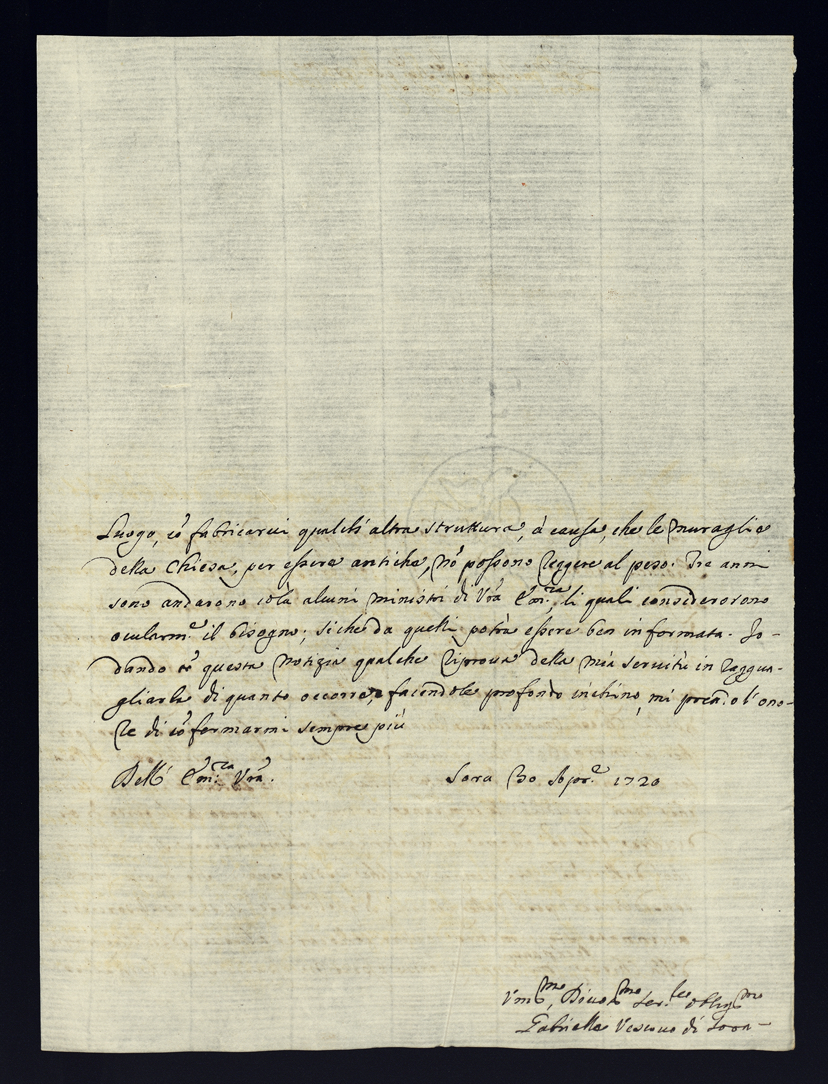 luogo, ò fabricarvi qualch' altra struttura, à causa, che le muraglie
della Chiesa, per essere antiche, nõ possono reggere al peso. Tre anni
sono andarono colà alcuni ministri di Vrã Em.za, li quali considerorono
ocularm.e il bisogno; siche da quelli potrà essere ben informata. Io
dando cõ questa notizia qualche riprova della mia servitù in raggua-
gliarla di quanto occorre, e facendole profondo inchino, mi preggio l'ono-
re di cõfermarmi sempre più
Dell' Em.za Vrã.
Sora 30 1720
Vm.mo, Divot.mo Ser.re oblig.mo
Gabriele Vescovo di Sora